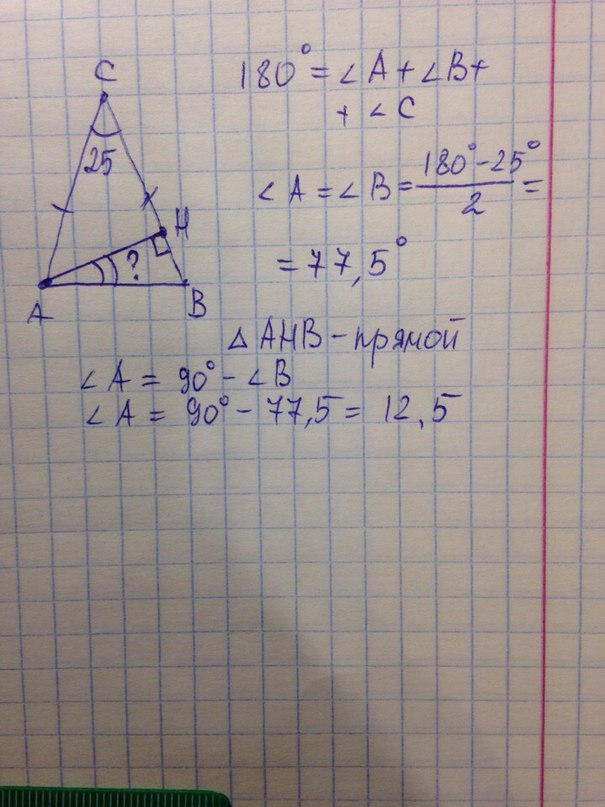 C
25
H
?
A
B
180° = ∠A + ∠B +
+ ∠C
∠A = ∠B = (180° - 25°)/2 =
= 77,5°
△ AHB - прямой
∠A = 90° - ∠B
∠A = 90° - 77,5 = 12,5